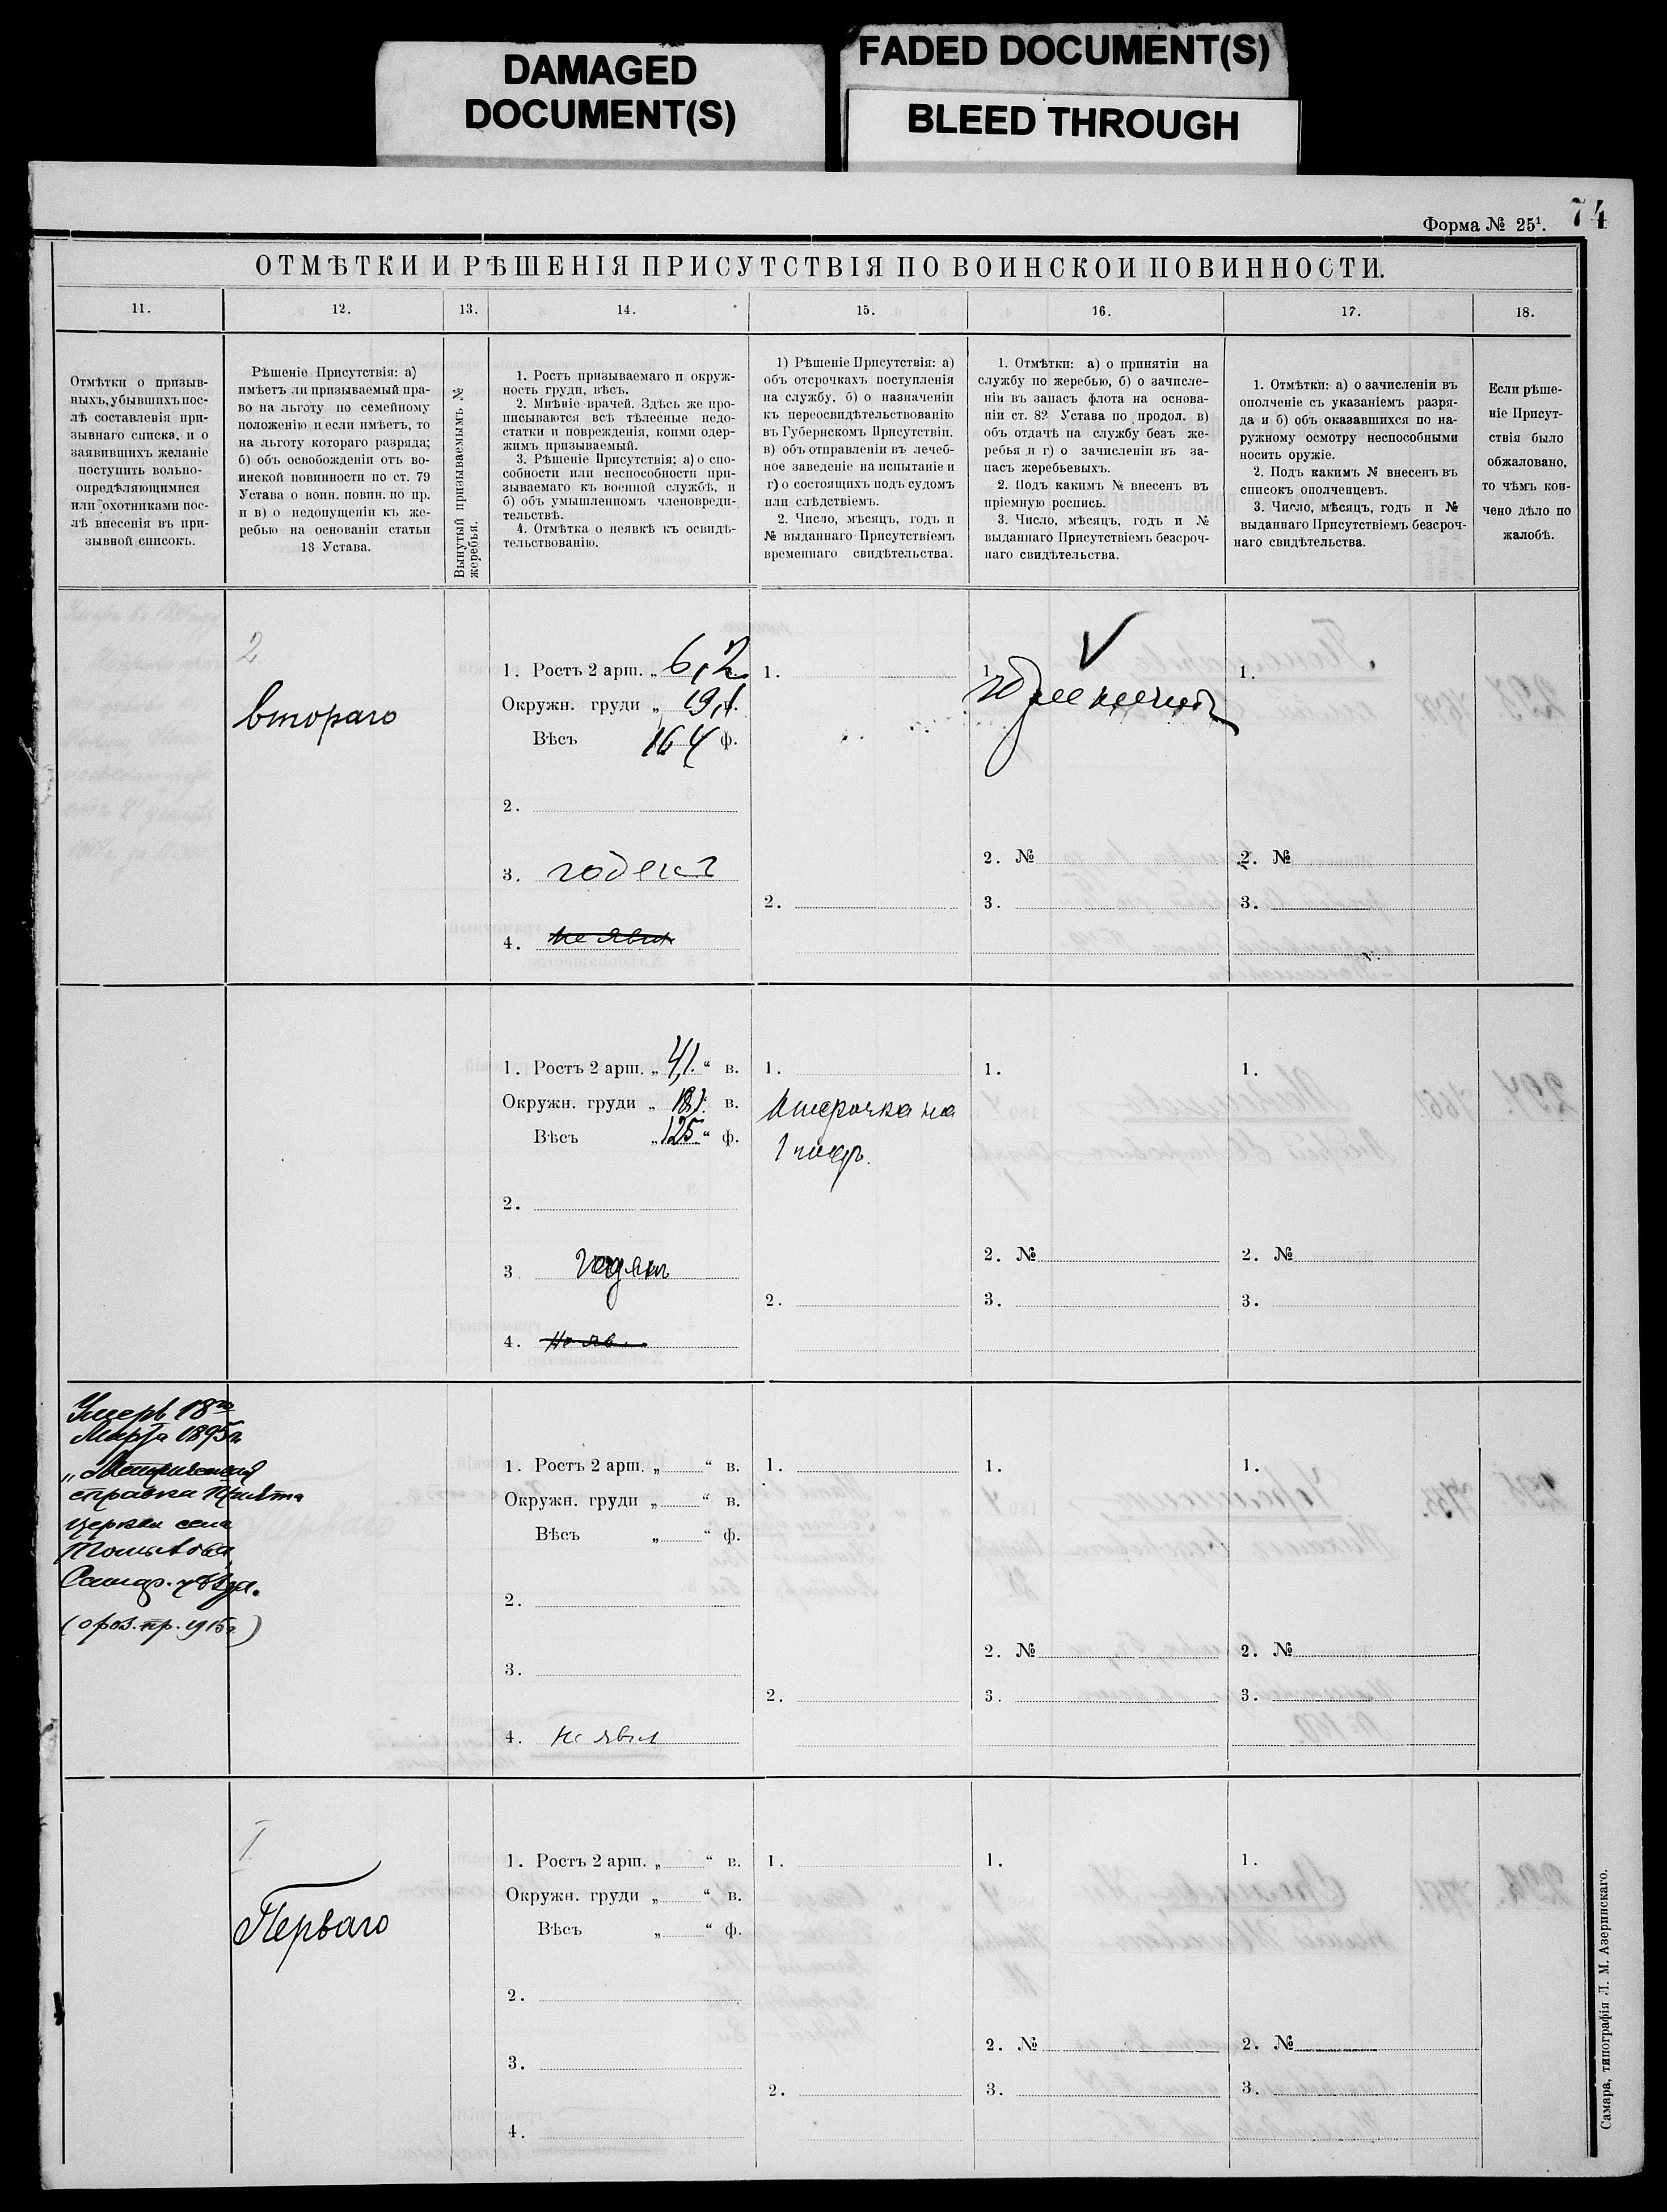 DAMAGED
DOCUMENT(S)
FADED DOCUMENT(S)
BLEED THROUGH
Форма № 25¹.
74
ОТМѢТКИ И РѢШЕНІЯ ПРИСУТСТВІЯ ПО ВОИНСКОЙ ПОВИННОСТИ.
11. 12. 13. 14. 15. 16. 17. 18.
Отмѣтки о призыв-
ныхъ, убывшихъ пос-
лѣ составленія при-
зывнаго списка, и о
заявившихъ желаніе
поступить вольно-
опредѣляющимися
или охотниками пос-
лѣ внесенія въ при-
зывной списокъ.
Рѣшеніе Присутствія: а)
имѣетъ ли призываемый пра-
во на льготу по семейному
положенію и если имѣетъ, то
на льготу котораго разряда;
б) объ освобожденіи отъ во-
инской повинности по ст. 79
Устава о воин. повин. по пр.
и в) о недопущеніи къ же-
ребью на основаніи статьи
13 Устава.
Вынутый призываемымъ №
жеребья.
1. Ростъ призываемаго и окруж-
ность груди, вѣсъ.
2. Мнѣніе врачей. Здѣсь же про-
писываются всѣ тѣлесные недо-
статки и поврежденія, коими одер-
жимъ призываемый.
3. Рѣшеніе Присутствія; а) о спо-
собности или неспособности при-
зываемаго къ военной службѣ, и
б) объ умышленномъ членовреди-
тельствѣ.
4. Отмѣтка о неявкѣ къ освидѣ-
тельствованію.
1) Рѣшеніе Присутствія: а)
объ отсрочкахъ поступленія
на службу, б) о назначеніи
къ переосвидѣтельствованію
въ Губернскомъ Присутствіи.
в) объ отправленіи въ лечеб-
ное заведеніе на испытаніе и
г) о состоящихъ подъ судомъ
или слѣдствіемъ.
2. Число, мѣсяцъ, годъ и
№ выданнаго Присутствіемъ
временнаго свидѣтельства.
1. Отмѣтки: а) о принятіи на
службу по жеребью, б) о зачисле-
ніи въ запасъ флота на основа-
ніи ст. 82 Устава по продол. в)
объ отдачѣ на службу безъ же-
ребья и г) о зачисленіи въ за-
пасъ жеребьевыхъ.
2. Подъ какимъ № внесенъ въ
пріемную роспись.
3. Число, мѣсяцъ, годъ и №
выданнаго Присутствіемъ безсроч-
наго свидѣтельства.
1. Отмѣтки: а) о зачисленіи въ
ополченіе съ указаніемъ разря-
да и б) объ оказавшихся по на-
ружному осмотру неспособными
носить оружіе.
2. Подъ какимъ № внесенъ въ
списокъ ополченцевъ.
3. Число, мѣсяцъ, годъ и №
выданнаго Присутствіемъ безсроч-
наго свидѣтельства.
Если рѣше-
ніе Присут-
ствія было
обжаловано,
то чѣмъ кон-
чено дѣло по
жалобѣ.
2
втораго
1. Ростъ 2 арш. „ 6,2
Окружн. груди „ 19,1 в.
Вѣсъ 164 ф.
2.
3. годенъ
4. не явил
1.
2.
1.
2. №
3.
1.
2. №
3.
1. Ростъ 2 арш. „ 4,1 “ в.
Окружн. груди „ 18,1 в.
Вѣсъ „ 125 “ ф.
2.
3. Годенъ
4. не яв
1.
Отсрочка на
1 годъ.
2.
1.
2. №
3.
1.
2. №
3.
Умеръ 18го
Марта 1895г
„Метрическая
справка причта
церкви села
Самар. уѣзда.
(о роз. пр. 1915г.)
1. Ростъ 2 арш. „ “ в.
Окружн. груди „ “ в.
Вѣсъ „ “ ф.
2.
3.
4. не явил
1.
2.
1.
2. №
3.
1.
2. №
3.
I.
Перваго
1. Ростъ 2 арш. „ “ в.
Окружн. груди „ “ в.
Вѣсъ „ “ ф.
2.
3.
4.
1.
2.
1.
2. №
3.
1.
2. №
3.
Самара, типографія Л. М. Азеринскаго.